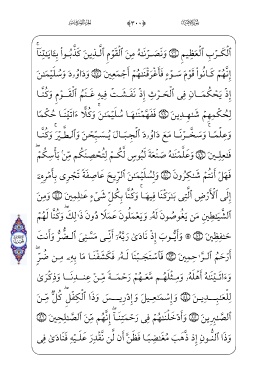 ﴿٣٠٠﴾
ٱلْكَرْبِ ٱلْعَظِيمِ وَنَصَرْنَٰهُ مِنَ ٱلْقَوْمِ ٱلَّذِينَ كَذَّبُوا۟ بِـَٔايَٰتِنَآ
إِنَّهُمْ كَانُوا۟ قَوْمَ سَوْءٍ فَأَغْرَقْنَٰهُمْ أَجْمَعِينَ وَدَاوُۥدَ وَسُلَيْمَٰنَ
إِذْ يَحْكُمَانِ فِى ٱلْحَرْثِ إِذْ نَفَشَتْ فِيهِ غَنَمُ ٱلْقَوْمِ وَكُنَّا
لِحُكْمِهِمْ شَٰهِدِينَ فَفَهَّمْنَٰهَا سُلَيْمَٰنَ وَكُلًّا ءَاتَيْنَا حُكْمًا
وَعِلْمًا وَسَخَّرْنَا مَعَ دَاوُۥدَ ٱلْجِبَالَ يُسَبِّحْنَ وَٱلطَّيْرَ وَكُنَّا
فَٰعِلِينَ وَعَلَّمْنَٰهُ صَنْعَةَ لَبُوسٍ لَّكُمْ لِتُحْصِنَكُم مِّنۢ بَأْسِكُمْ
فَهَلْ أَنتُمْ شَٰكِرُونَ وَلِسُلَيْمَٰنَ ٱلرِّيحَ عَاصِفَةً تَجْرِى بِأَمْرِهِۦٓ
إِلَى ٱلْأَرْضِ ٱلَّتِى بَٰرَكْنَا فِيهَا وَكُنَّا بِكُلِّ شَىْءٍ عَٰلِمِينَ وَمِنَ
ٱلشَّيَٰطِينِ مَن يَغُوصُونَ لَهُۥ وَيَعْمَلُونَ عَمَلًا دُونَ ذَٰلِكَ وَكُنَّا لَهُمْ
حَٰفِظِينَ ۞ وَأَيُّوبَ إِذْ نَادَىٰ رَبَّهُۥٓ أَنِّى مَسَّنِىَ ٱلضُّرُّ وَأَنتَ
أَرْحَمُ ٱلرَّٰحِمِينَ فَٱسْتَجَبْنَا لَهُۥ فَكَشَفْنَا مَا بِهِۦ مِن ضُرٍّ
وَءَاتَيْنَٰهُ أَهْلَهُۥ وَمِثْلَهُم مَّعَهُمْ رَحْمَةً مِّنْ عِندِنَا وَذِكْرَىٰ
لِلْعَٰبِدِينَ وَإِسْمَٰعِيلَ وَإِدْرِيسَ وَذَا ٱلْكِفْلِ كُلٌّ مِّنَ
ٱلصَّٰبِرِينَ وَأَدْخَلْنَٰهُمْ فِى رَحْمَتِنَآ إِنَّهُم مِّنَ ٱلصَّٰلِحِينَ
وَذَا ٱلنُّونِ إِذ ذَّهَبَ مُغَٰضِبًا فَظَنَّ أَن لَّن نَّقْدِرَ عَلَيْهِ فَنَادَىٰ فِى